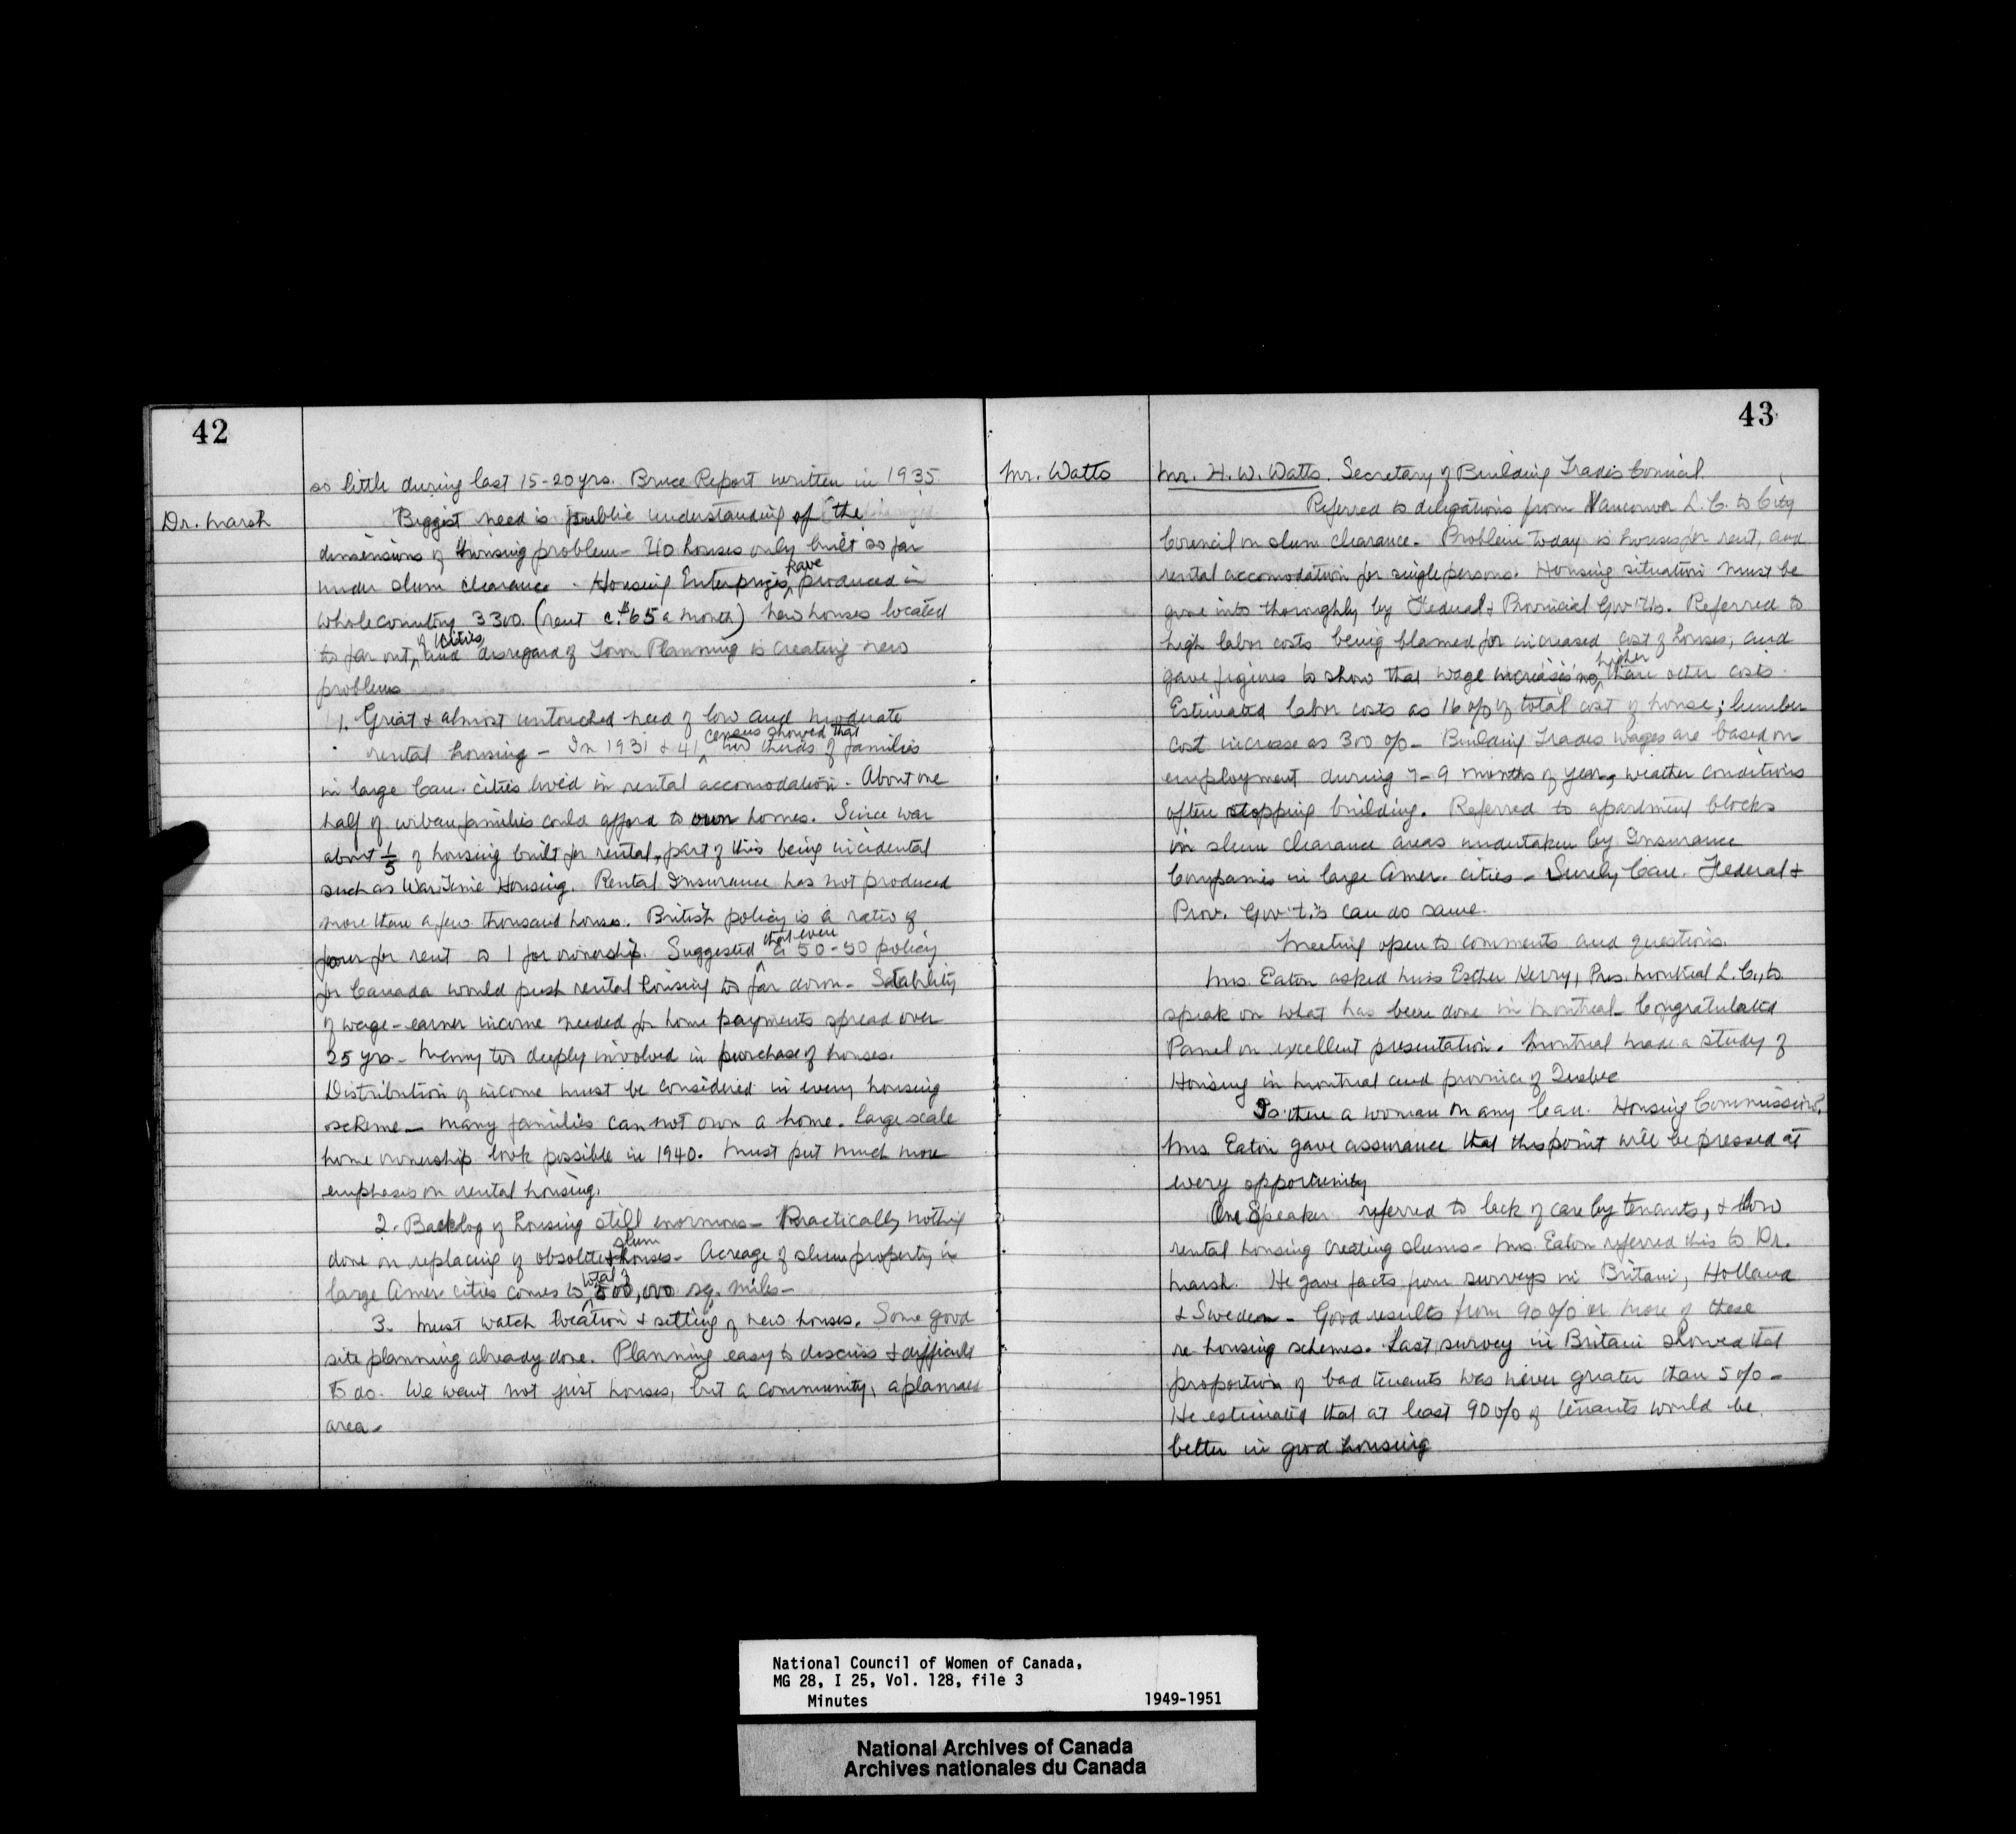 42
so little during last 15-20 yrs. Bruce Report written in 1935.
Dr. Marsh
Biggest need is public understanding of the
dimensions of housing problem - 40 houses only built so far
under slum clearance - Housing Enterprises have produced in
whole country 3300. (rent c. $65 a month) New houses located
to far out of cities, and disregard of Town Planning is creating new
problems
1. Great & almost untouched need of low and moderate
rental housing - In 1931 & 41 census showed that two thirds of families
in large Can. cities lived in rental accomodation. About one
half of urban families could afford to own homes. Since war
about 1/5 of housing built for rental, part of this being incidental
such as War Time Housing. Rental Insurance has not produced
more than a few thousand houses. British policy is a ratio of
four for rent to 1 for ownership. Suggested that even a 50-50 policy
for Canada would push rental housing to far down - Stability
of wage-earner income needed for home payments spread over
25 yrs - Many too deeply involved in purchase of houses.
Distribution of income must be considered in every housing
scheme - many families can not own a home. Large scale
home ownership look possible in 1940. Must put much more
emphasis on rental housing.
2. Backlog of housing still enormous - Practically nothing
done on replacing of obsolete & slum houses - Acreage of slum property in
large Amer. cities comes to total of 500,000 sq. miles -
3. Must watch location & setting of new houses. Some good
site planning already done. Planning easy to discuss & difficult
to do. We want not just houses, but a community, a planned
area -
43
Mr. Watts
Mr. H. W. Watts, Secretary of Building Trades Council.
Referred to delegations from Vancouver L. C. to City
Council on slum clearance. Problem today is houses for rent, and
rental accomodation for single persons. Housing situation must be
gone into thoroughly by Federal & Provincial Gov'ts. Referred to
high labor costs being blamed for increased cost of houses, and
gave figures to show that wage increases no higher than other costs.
Estimated labor costs as 16 o/o of total cost of house; lumber
cost increase as 300 o/o - Building Trades wages are based on
employment during 7-9 months of year, weather conditions
often stopping building. Referred to apartment blocks
in slum clearance areas undertaken by Insurance
Companies in large Amer. cities - Surely Can. Federal &
Prov. Gov't.s can do same.
Meeting open to comments and questions.
Mrs. Eaton asked Miss Esther Kerry, Pres. Montreal L. C., to
speak on what has been done in Montreal - Congratulated
Panel on excellent presentation. Montreal made a study of
Housing in Montreal and province of Quebec
Is there a woman on any Can. Housing Commissions.
Mrs. Eaton gave assurance that this point will be pressed at
every opportunity
One Speaker referred to lack of care by tenants, & thus
rental housing creating slums - Mrs. Eaton referred this to Dr.
Marsh. He gave facts from surveys in Britain, Holland
& Sweden - Good results from 90 o/o or more of these
re housing schemes. Last survey in Britain showed that
proportion of bad tenants was never greater than 5 o/o -
He estimated that at least 90 o/o of tenants would be
better in good housing
National Council of Women of Canada,
MG 28, I 25, Vol. 128, file 3
Minutes 1949-1951
National Archives of Canada
Archives nationales du Canada